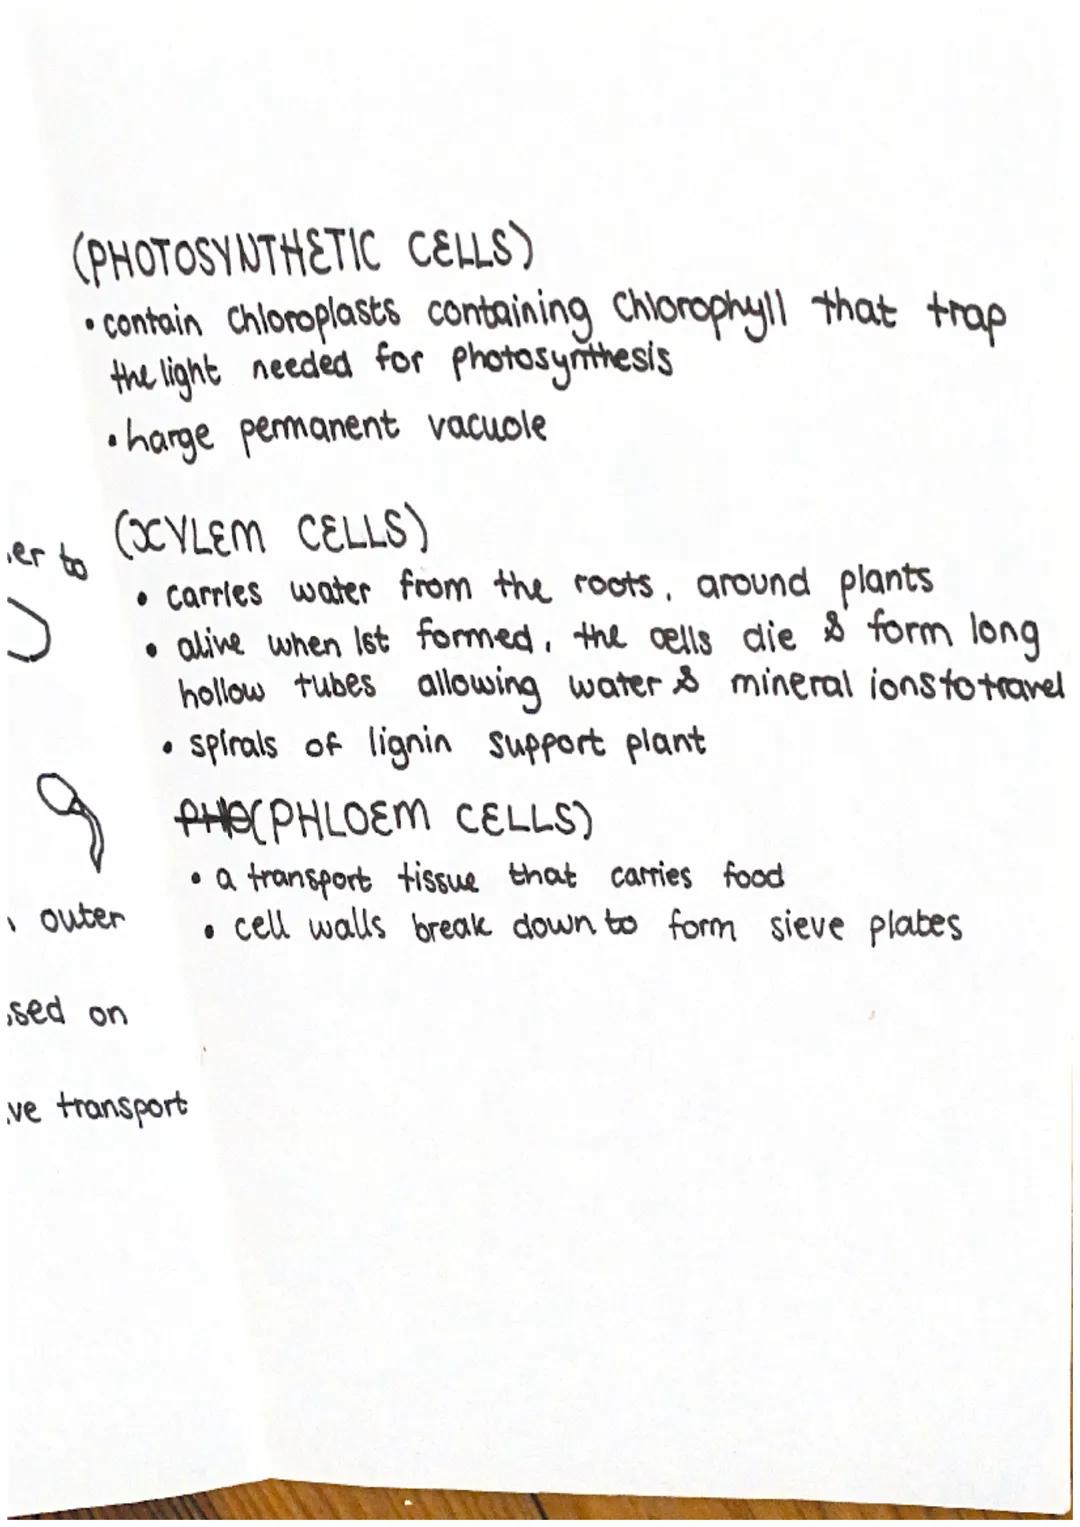 (PHOTOSYNTHETIC CELLS)
• contain chloroplasts containing chlorophyll that trap
the light needed for photosynthesis
• harge permanent vacuole
(XYLEM CELLS)
• carries water from the roots, around plants
• alive when 1st formed, the cells die & form long
hollow tubes allowing water & mineral ions to travel
• spirals of lignin support plant
(PHLOEM CELLS)
• a transport tissue that carries food
• cell walls break down to form sieve plates
er to
outer
sed on
ve transport